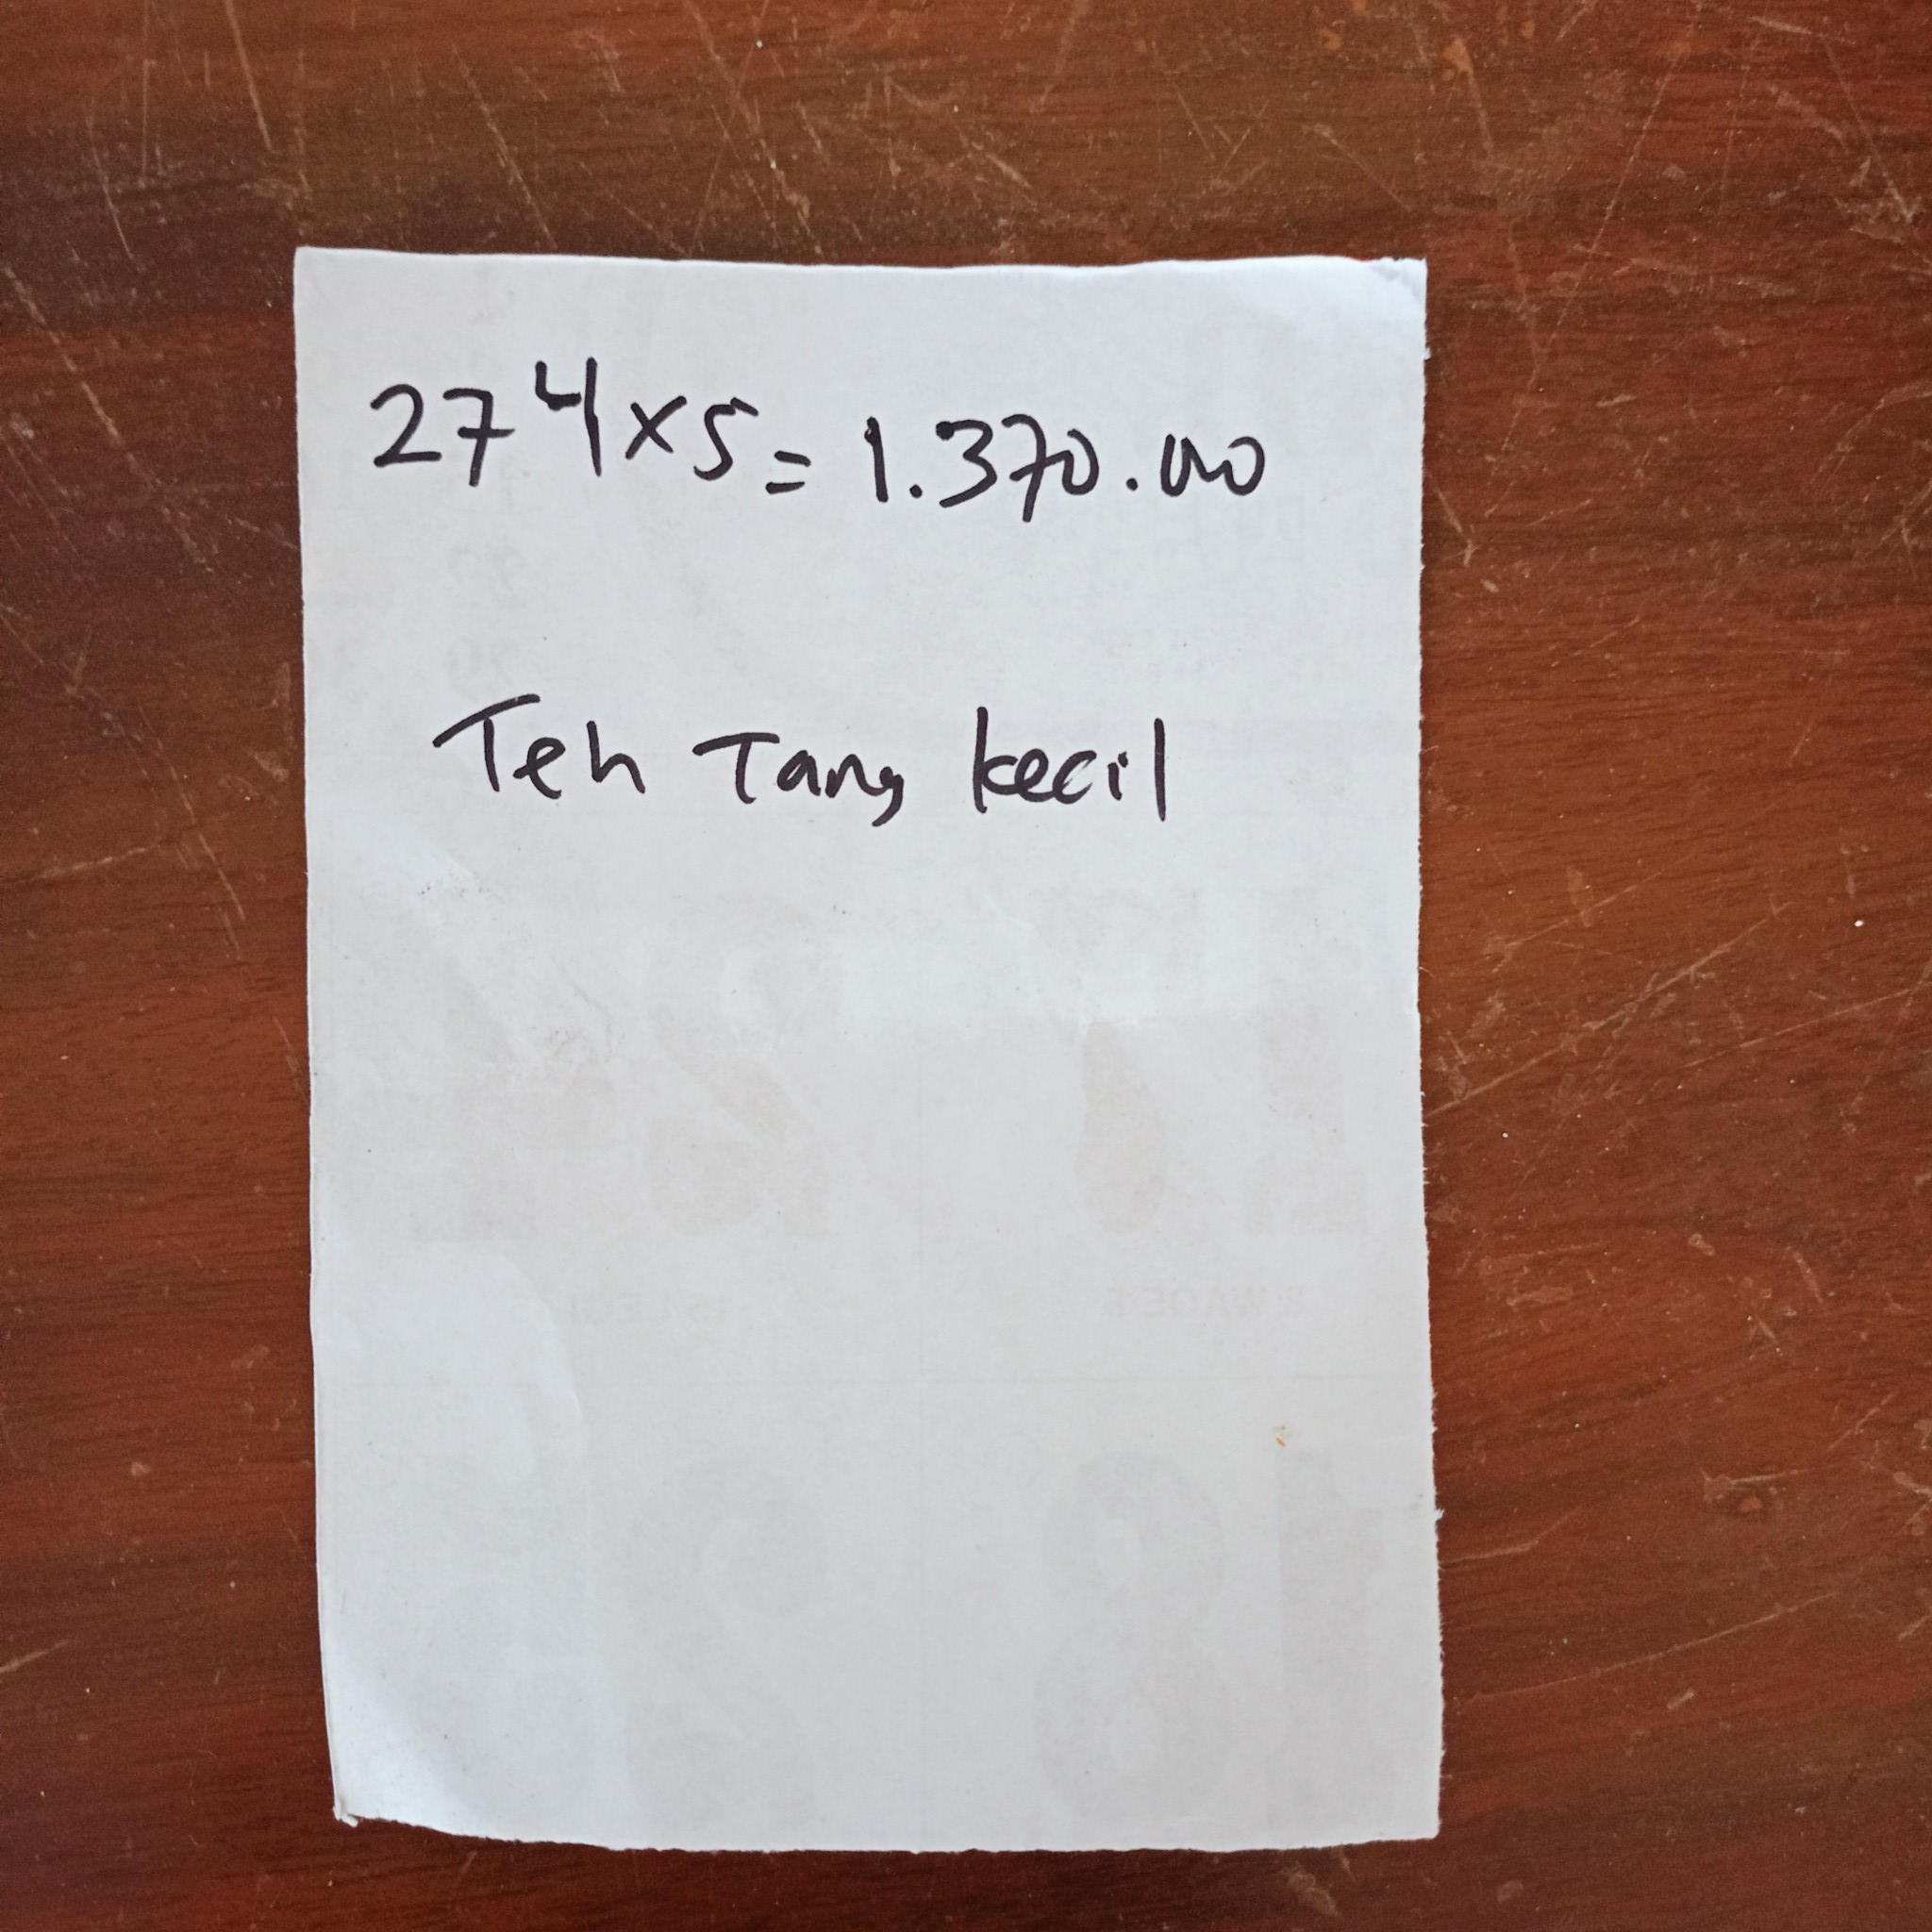 274x5= 1.370.000
Teh Tang kecil